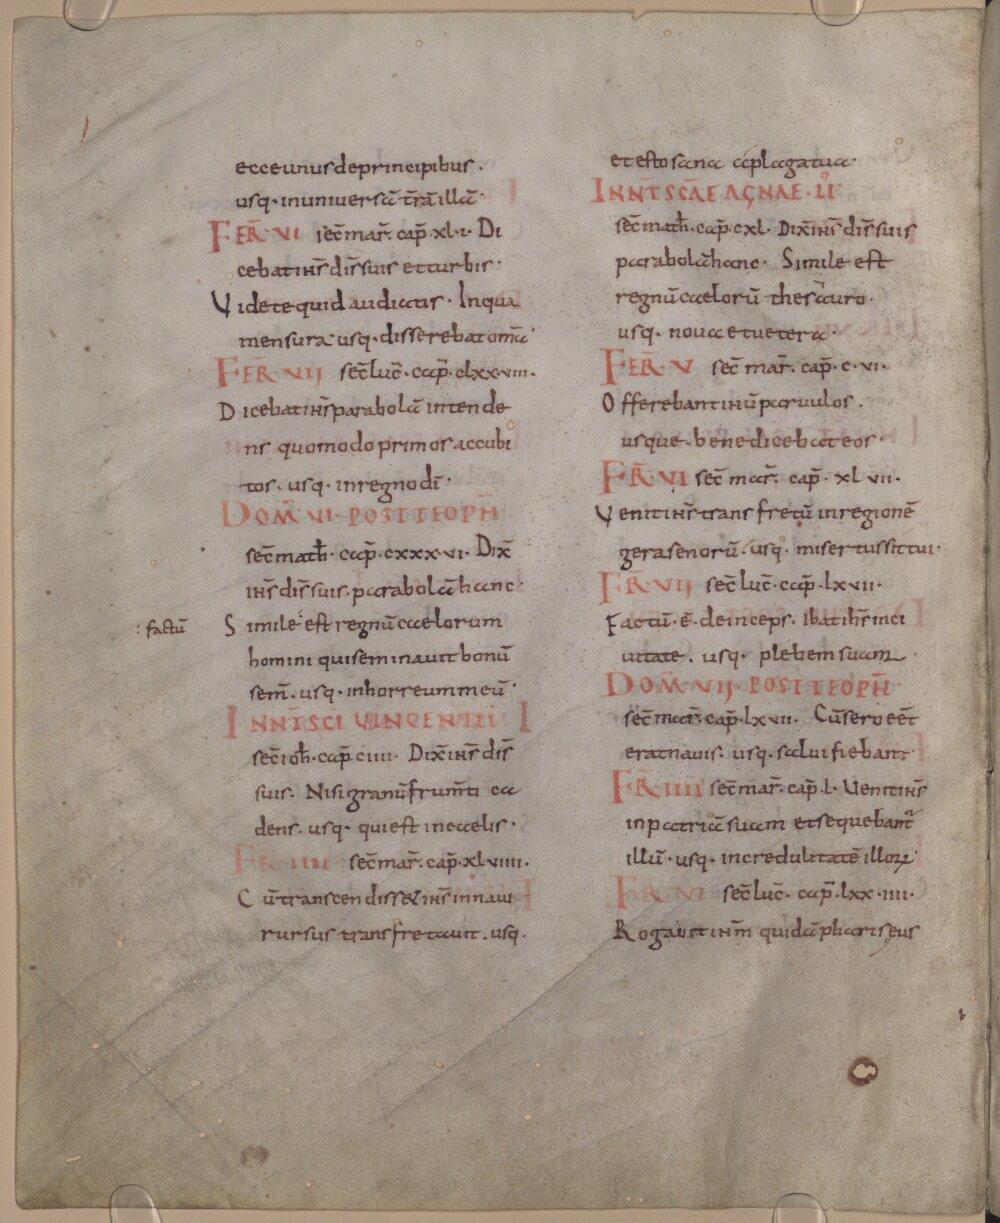 ecce unus de principibus.
usq· in universā tr̄ā illā·
FER̄ VI sec̄ mar̄· cap̄· xl·i· Di
cebat ihs̄ dis̄ suis et turbis·
Videte quid audiatis· In qua
mensura usq· disserebat om̄a·
FER̄ VII sec̄ luc̄· cap̄· clxx·viii·
Dicebat ihs̄ parabolā intende
ns quomodo primos accubi
tos· usq· in regno dī·
DOM̄ VI· POST TEOPH̄
sec̄ math̄· cap̄· cxxx·vi· Dix̄
ihs̄ dis̄ suis· parabolā hanc·
: factū
Simile est regnū caelorum
homini qui seminavit bonū
sem̄· usq· in horreum meū·
IN NT̄ SCI VINCENTII
sec̄ ioh̄· cap̄ ciiii· Dix̄ ihs̄ dis̄
suis· Nisi granū frum̄ti ca
dens· usq· qui est in caelis·
FR̄ IIII sec̄ mar̄· cap̄· xl·viiii·
Cū transcendiss& ihs̄ in navi
rursus transfretavit· usq·
et esto sana a plaga tua·
IN NT̄ SCAE AGNAE· LI
sec̄ math̄· cap̄· cxl· Dix̄ ihs̄ dis̄ suis
parabolā hanc· Simile est
regnū caelorū thesauro·
usq· nova et vetera·
FER̄ V sec̄ mar̄· cap̄· c·vi·
Offerebant ihū parvulos·
usque· benedicebat eos·
FR̄ VI sec̄ mar̄· cap̄· xl vii·
Venit ihs̄ trans fretū in regionē
gerasenorū· usq· misertus sit tui·
FR̄ VII sec̄ luc̄· cap̄· lx·vii·
Factū· ē· deinceps· ibat ihs̄ in ci
vitate· usq· plebem suam·
DOM̄ VII· POST TEOPH̄
sec̄ mar̄· cap̄· lx·vii· Cū sero eēt
erat navis· usq· salvi fiebant·
FR̄ IIII sec̄ mar̄· cap̄· l· Venit ihs̄
in patriā suam et sequebant̄
illū· usq· incredulitatē illoꝝ
FR̄ VI sec̄ luc̄· cap̄· lxx·iiii·
Rogavit ihm̄ quidā phariseus